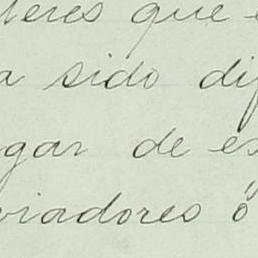 teres que e
a sido dif
gar de es
viadores ó